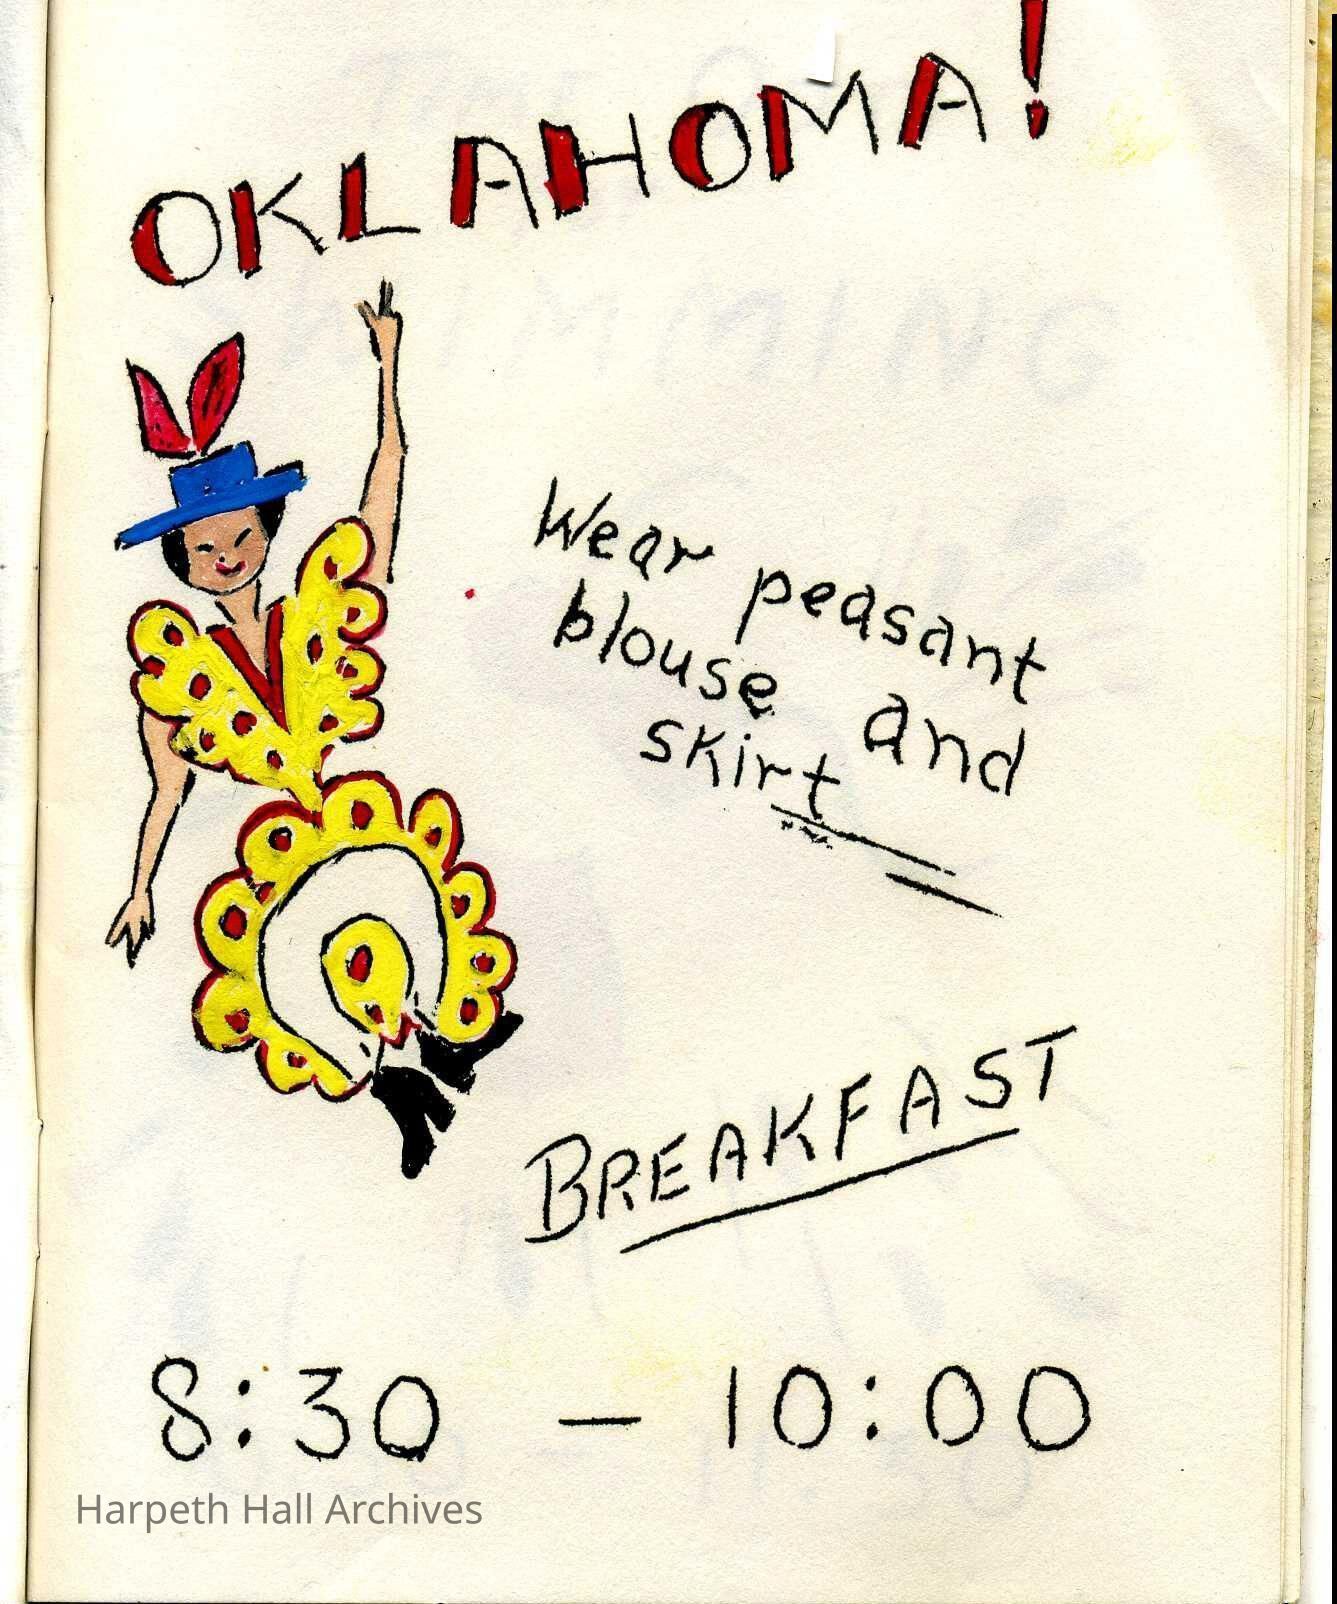 OKLAHOMA!
Wear peasant
blouse and
skirt
BREAKFAST
8:30 - 10:00
Harpeth Hall Archives